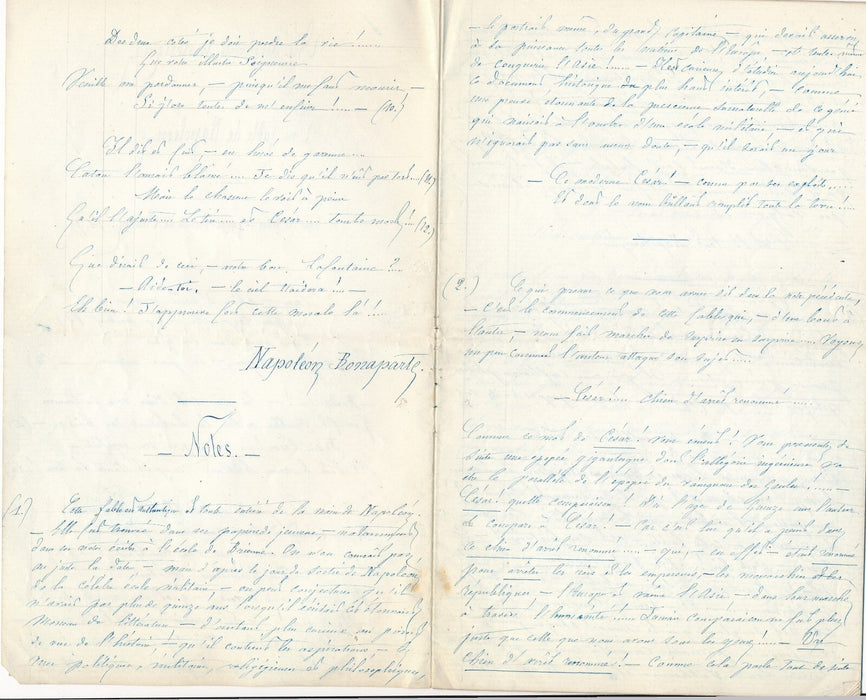 Des deux côtés je dois perdre la vie !.....
Que votre illustre Seigneurie
Veuille me pardonner, — puisqu'il me faut mourir —
Si j'ose tenter de m'enfuir !... — (10.)
Il dit et fuit, — en héros de garenne...
Caton l'aurait blâmé.... Je dis qu'il n'eut pas tort... (11.)
Mais le chasseur le voit à peine
Qu'il l'ajuste... le tire... et César.... tombe mort !... (12.)
Que dirait de ceci, — notre bon Lafontaine ?...
— Aide-toi, — le ciel t'aidera !... —
Eh bien ! J'approuve fort cette morale là !!...
Napoléon Bonaparte.
— Notes. —
(1.) Cette fable est authentique et toute entière de la main de Napoléon.
— Elle fut trouvée dans ses papiers de jeunesse, — notamment
dans ses notes écrites à l'école de Brienne. On n'en connait pas
au juste la date, — mais d'après le jour de sortie de Napoléon
de la célèbre école militaire, — on peut conjecturer qu'il
n'avait pas plus de quinze ans lorsqu'il écrivit cet étonnant
Morceau de littérature — d'autant plus curieux au point
de vue de l'histoire, — qu'il contient les aspirations, — les
vues politiques, militaires, religieuses et philosophiques,
— le portrait même, du grand Capitaine — qui devait asservir
de la puissance toutes les nations de l'Europe, — et tenter même
de conquérir l'Asie !... — curieux aujourd'hui
ce document historique du plus haut intérêt, — comme
une preuve étonnante de la prescience surnaturelle de ce génie
qui naissait à l'ombre d'une école militaire, — et qui
n'ignorait pas sans aucun doute, — qu'il serait un jour
— Ce moderne César ! — connu par ses exploits.....
Et dont le nom brillant remplit toute la terre !...
(2.) Ce qui prouve ce que nous avons dit dans la note précédente,
— c'est le commencement de cette fable qui, — d'un bout à
l'autre, — nous fait marcher de surprise en surprise.... Voyons
un peu comment l'auteur attaque son sujet.....
— César !... chien d'arrêt renommé.....
Comme ce mot de César ! vous émeut ! Vous pressentez de
suite une épopée gigantesque dont l'allégorie ingénieuse va
être le parallèle de l'épopée du vainqueur des Gaules !... —
César ! quelle comparaison ! A l'âge de quinze ans l'auteur
se compare à César ! — car c'est lui qu'il a peint dans
ce chien d'arrêt renommé..... — qui, — en effet — était renommé
pour arrêter les rois et les empereurs, — les monarchies et les
républiques, — l'Europe et même l'Asie — dans leur marche
à travers l'humanité !.... Jamais comparaison ne fut plus
juste que celle que nous avons sous les yeux !.... — Un
chien d'arrêt renommé ! — Comme cela parle tout de suite